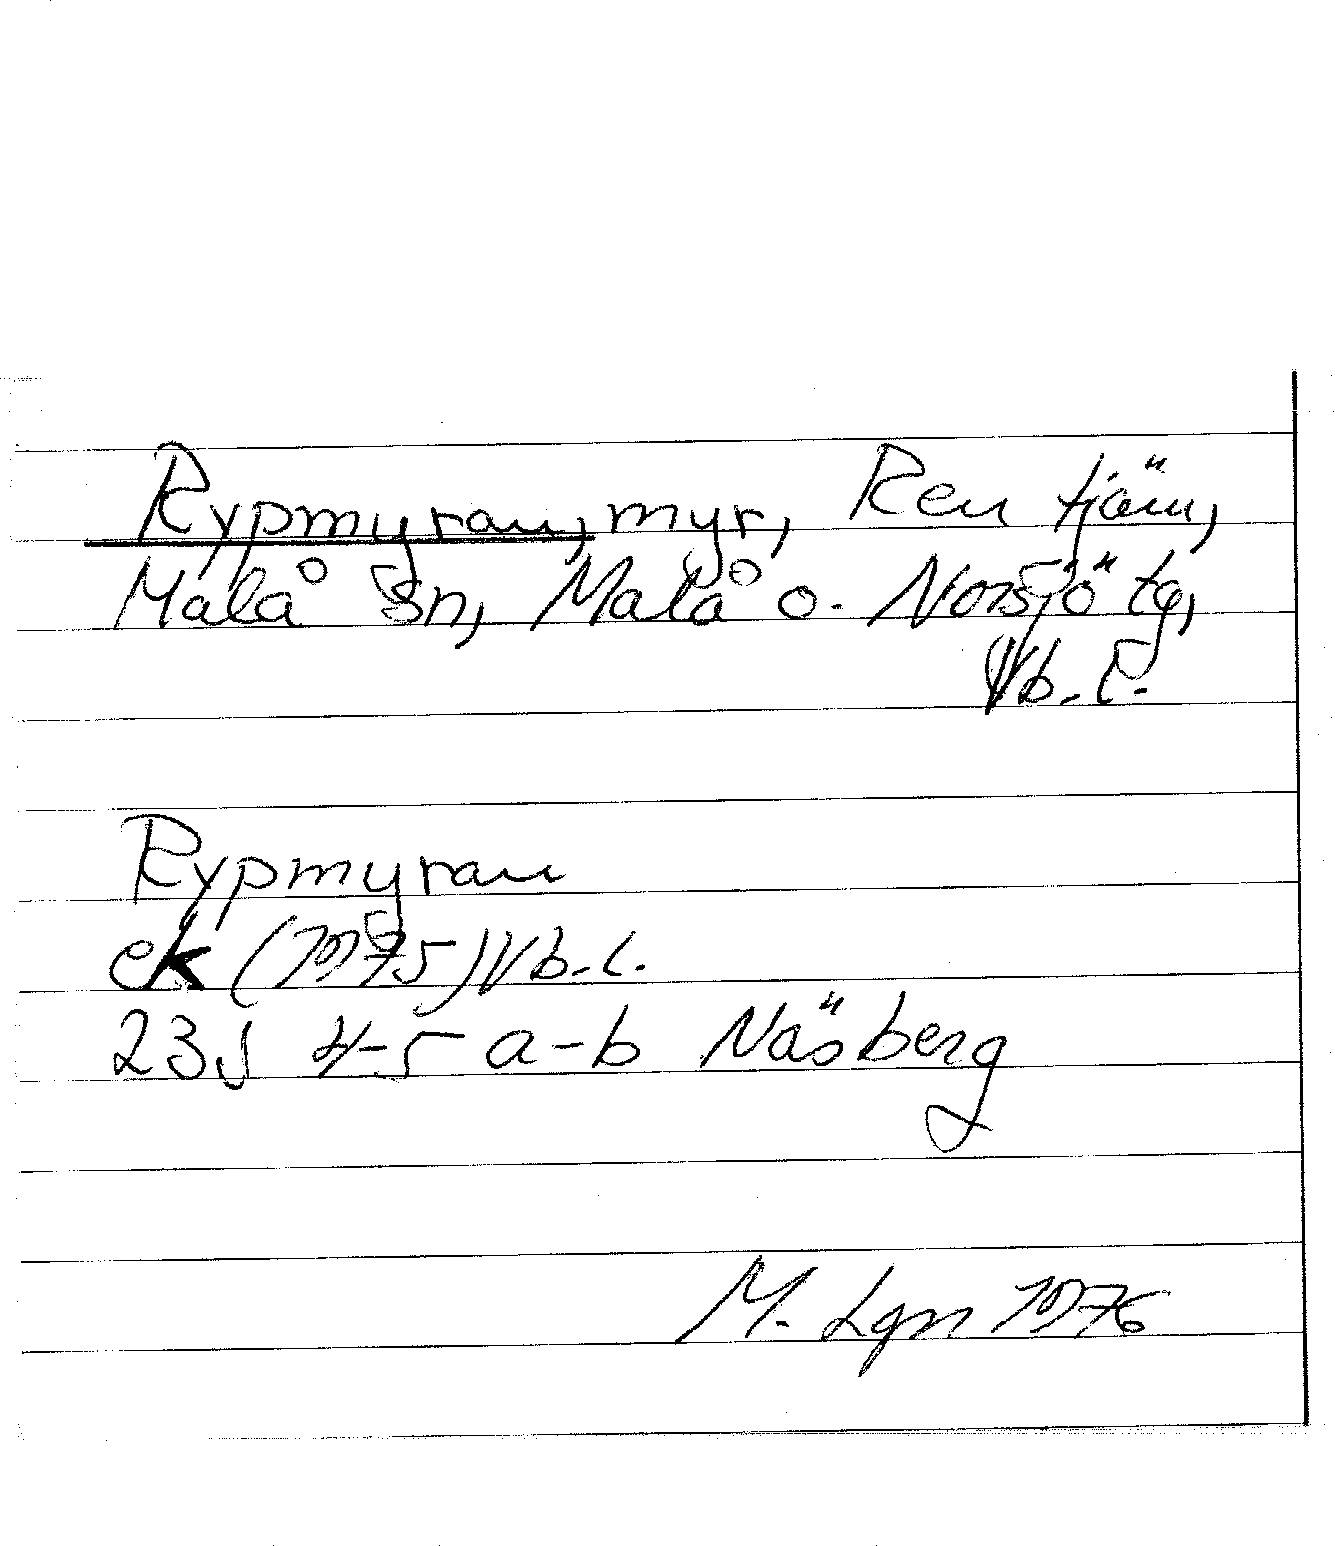 Rypmyran, myr, Rentjärn,
Malå sn, Malå o. Norsjö tg,
Vb. l.
Rypmyran
ek (1975) Vb. l.
23J 4-5 a-b Näsberg
M. Lgn 1976